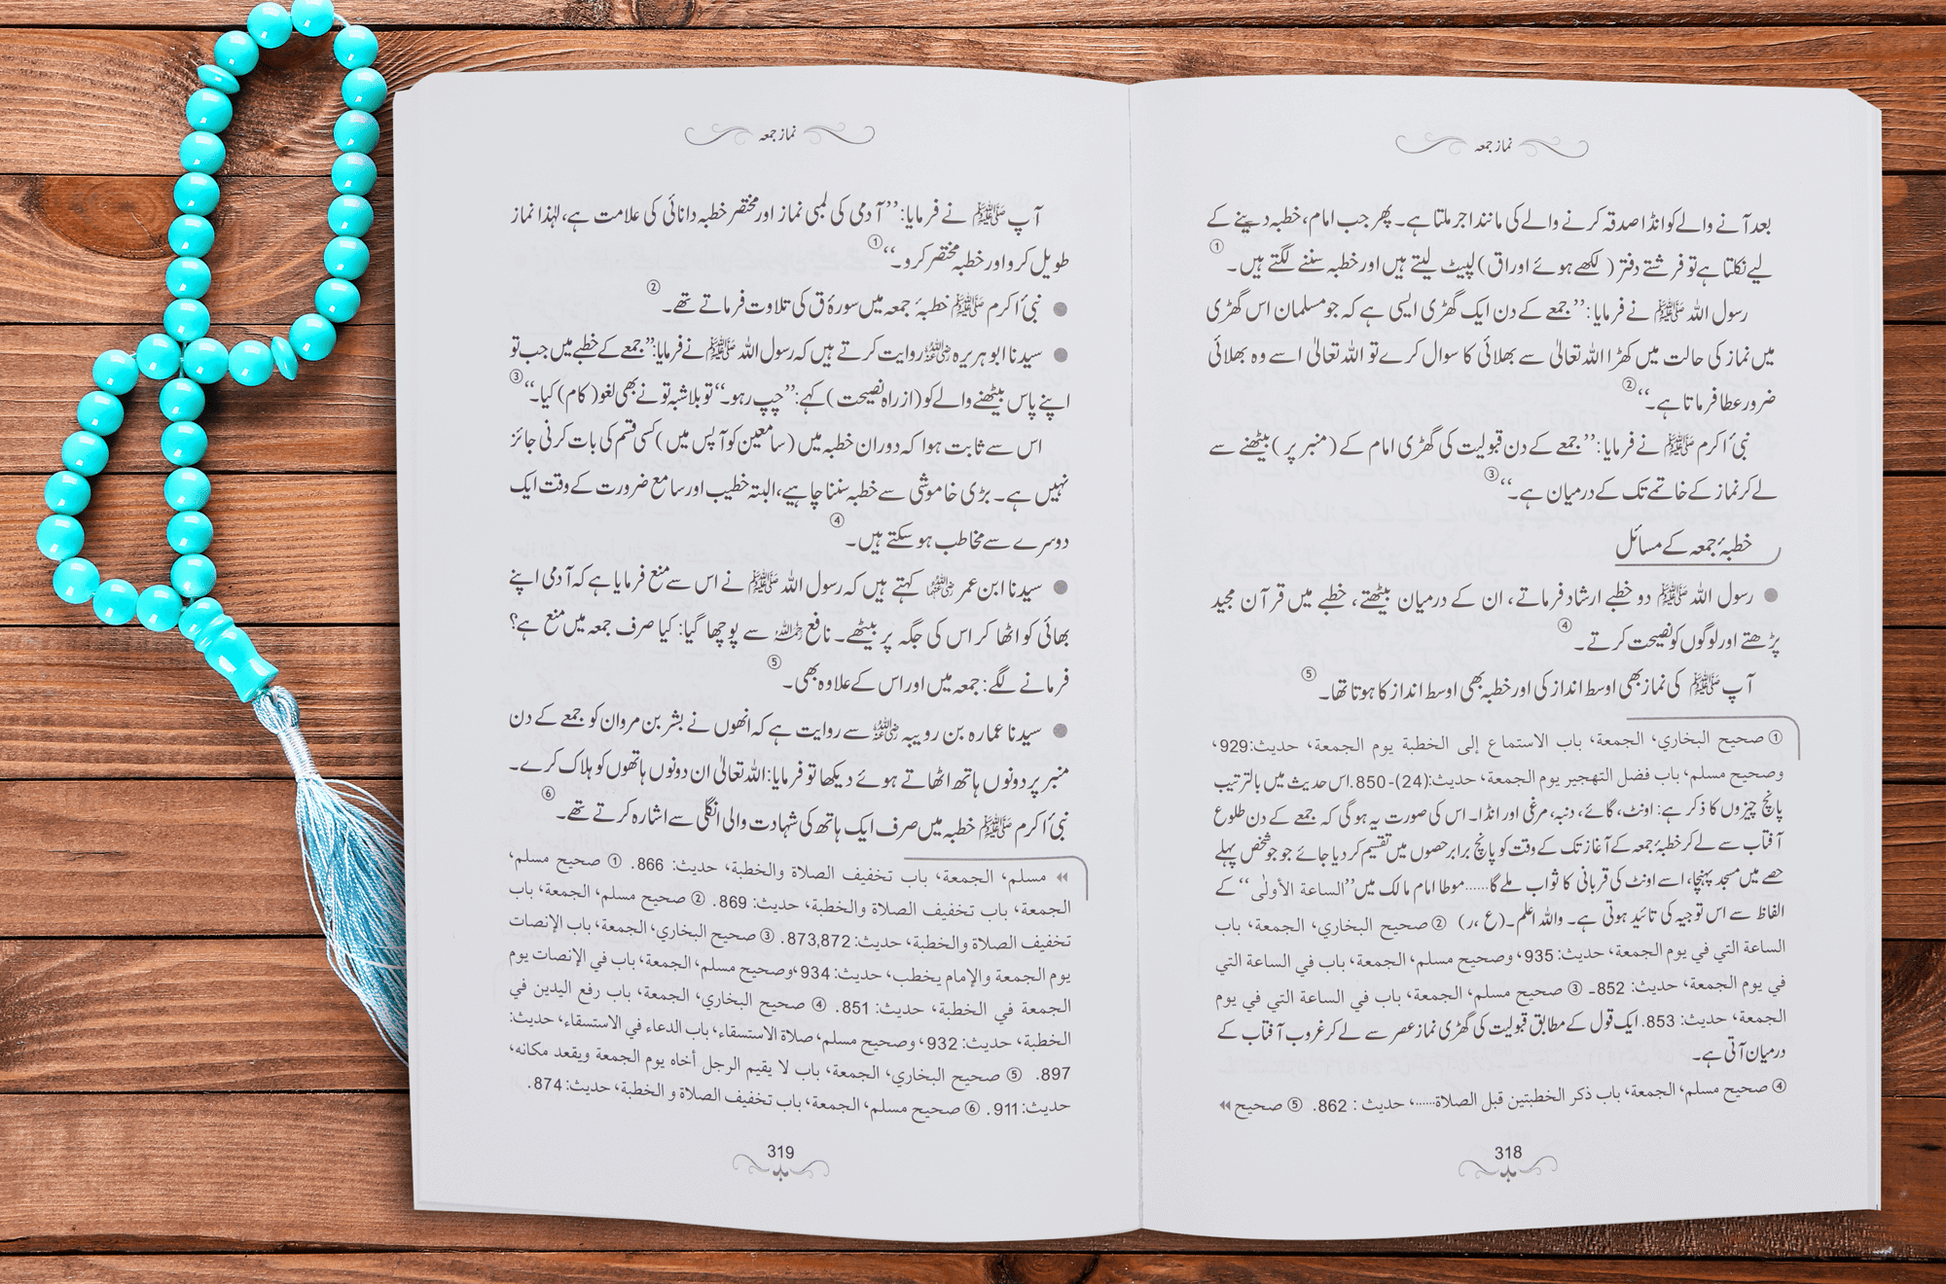 نماز جمعہ
بعد آنے والے کو انڈا صدقہ کرنے والے کی مانند اجر ملتا ہے۔ پھر جب امام، خطبہ دینے کے
لیے نکلتا ہے تو فرشتے دفتر (لکھے ہوئے اوراق) لپیٹ لیتے ہیں اور خطبہ سننے لگتے ہیں۔ ①
رسول اللہ ﷺ نے فرمایا: ’’جمعے کے دن ایک گھڑی ایسی ہے کہ جو مسلمان اس گھڑی
میں نماز کی حالت میں کھڑا اللہ تعالیٰ سے بھلائی کا سوال کرے تو اللہ تعالیٰ اسے وہ بھلائی
ضرور عطا فرماتا ہے۔‘‘ ②
نبیٔ اکرم ﷺ نے فرمایا: ’’جمعے کے دن قبولیت کی گھڑی امام کے (منبر پر) بیٹھنے سے
لے کر نماز کے خاتمے تک کے درمیان ہے۔‘‘ ③
خطبۂ جمعہ کے مسائل
● رسول اللہ ﷺ دو خطبے ارشاد فرماتے، ان کے درمیان بیٹھتے، خطبے میں قرآن مجید
پڑھتے اور لوگوں کو نصیحت کرتے۔ ④
آپ ﷺ کی نماز بھی اوسط انداز کی اور خطبہ بھی اوسط انداز کا ہوتا تھا۔ ⑤
① صحيح البخاري، الجمعة، باب الاستماع إلى الخطبة يوم الجمعة، حديث:929،
وصحيح مسلم، باب فضل التهجير يوم الجمعة، حديث:(24)-850. اس حدیث میں بالترتیب
پانچ چیزوں کا ذکر ہے: اونٹ، گائے، دنبہ، مرغی اور انڈا۔ اس کی صورت یہ ہوگی کہ جمعے کے دن طلوع
آفتاب سے لے کر خطبۂ جمعہ کے آغاز تک کے وقت کو پانچ برابر حصوں میں تقسیم کر دیا جائے جو جو شخص پہلے
حصے میں مسجد پہنچا، اسے اونٹ کی قربانی کا ثواب ملے گا...... موطا امام مالک میں ’’الساعة الأولى‘‘ کے
الفاظ سے اس توجیہ کی تائید ہوتی ہے۔ واللہ اعلم۔ (ع ،ر) ② صحيح البخاري، الجمعة، باب
الساعة التي في يوم الجمعة، حديث: 935، وصحيح مسلم، الجمعة، باب في الساعة التي
في يوم الجمعة، حديث: 852۔ ③ صحيح مسلم، الجمعة، باب في الساعة التي في يوم
الجمعة، حديث: 853. ایک قول کے مطابق قبولیت کی گھڑی نماز عصر سے لے کر غروب آفتاب کے
درمیان آتی ہے۔
④ صحيح مسلم، الجمعة، باب ذكر الخطبتين قبل الصلاة......، حديث : 862. ⑤ صحيح
318
نماز جمعہ
آپ ﷺ نے فرمایا: ’’آدمی کی لمبی نماز اور مختصر خطبہ دانائی کی علامت ہے، لہٰذا نماز
طویل کرو اور خطبہ مختصر کرو۔‘‘ ①
● نبیٔ اکرم ﷺ خطبۂ جمعہ میں سورۂ ق کی تلاوت فرماتے تھے۔ ②
● سیدنا ابو ہریرہ رضی اللہ عنہ روایت کرتے ہیں کہ رسول اللہ ﷺ نے فرمایا: ’’جمعے کے خطبے میں جب تو
اپنے پاس بیٹھنے والے کو (از راہ نصیحت) کہے: ’’چپ رہو۔‘‘ تو بلاشبہ تو نے بھی لغو (کام) کیا۔‘‘ ③
اس سے ثابت ہوا کہ دوران خطبہ میں (سامعین کو آپس میں) کسی قسم کی بات کرنی جائز
نہیں ہے۔ بڑی خاموشی سے خطبہ سننا چاہیے، البتہ خطیب اور سامع ضرورت کے وقت ایک
دوسرے سے مخاطب ہو سکتے ہیں۔ ④
● سیدنا ابن عمر رضی اللہ عنہما کہتے ہیں کہ رسول اللہ ﷺ نے اس سے منع فرمایا ہے کہ آدمی اپنے
بھائی کو اٹھا کر اس کی جگہ پر بیٹھے۔ نافع رحمہ اللہ سے پوچھا گیا: کیا صرف جمعہ میں منع ہے؟
فرمانے لگے: جمعہ میں اور اس کے علاوہ بھی۔ ⑤
● سیدنا عمارہ بن رویبہ رضی اللہ عنہ سے روایت ہے کہ انھوں نے بشر بن مروان کو جمعے کے دن
منبر پر دونوں ہاتھ اٹھاتے ہوئے دیکھا تو فرمایا: اللہ تعالیٰ ان دونوں ہاتھوں کو ہلاک کرے۔
نبیٔ اکرم ﷺ خطبہ میں صرف ایک ہاتھ کی شہادت والی انگلی سے اشارہ کرتے تھے۔ ⑥
مسلم، الجمعة، باب تخفيف الصلاة والخطبة، حديث: 866. ① صحيح مسلم،
الجمعة، باب تخفيف الصلاة والخطبة، حديث: 869. ② صحيح مسلم، الجمعة، باب
تخفيف الصلاة والخطبة، حديث: 873,872. ③ صحيح البخاري، الجمعة، باب الإنصات
يوم الجمعة والإمام يخطب، حديث: 934، وصحيح مسلم، الجمعة، باب في الإنصات يوم
الجمعة في الخطبة، حديث: 851. ④ صحيح البخاري، الجمعة، باب رفع اليدين في
الخطبة، حديث: 932، وصحيح مسلم، صلاة الاستسقاء، باب الدعاء في الاستسقاء، حديث:
897. ⑤ صحيح البخاري، الجمعة، باب لا يقيم الرجل أخاه يوم الجمعة ويقعد مكانه،
حديث: 911. ⑥ صحيح مسلم، الجمعة، باب تخفيف الصلاة و الخطبة، حديث: 874.
319